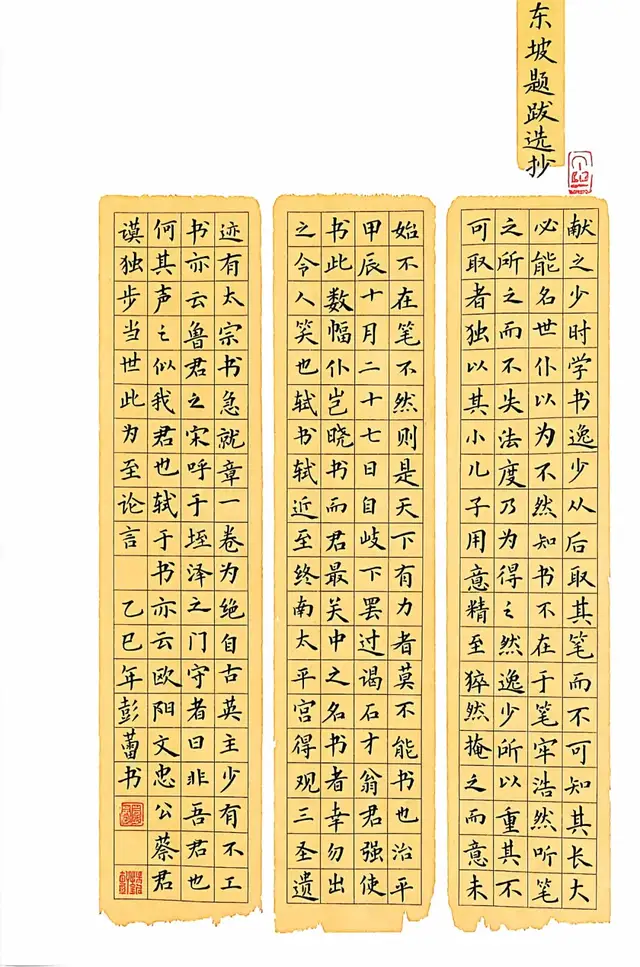 东坡题跋选抄
献之少时学书逸少从后取其笔而不可知其长大
必能名世仆以为不然知书不在于笔牢浩然听笔
之所之而不失法度乃为得之然逸少所以重其不
可取者独以其小儿子用意精至猝然掩之而意未
始不在笔不然则是天下有力者莫不能书也治平
甲辰十月二十七日自岐下罢过谒石才翁君强使
书此数幅仆岂晓书而君最关中之名书者幸勿出
之令人笑也轼书轼近至终南太平宫得观三圣遗
迹有太宗书急就章一卷为绝自古英主少有不工
书亦云鲁君之宋呼于垤泽之门守者曰非吾君也
何其声之似我君也轼于书亦云欧阳文忠公蔡君
谟独步当世此为至论言 乙巳年彭蕾书